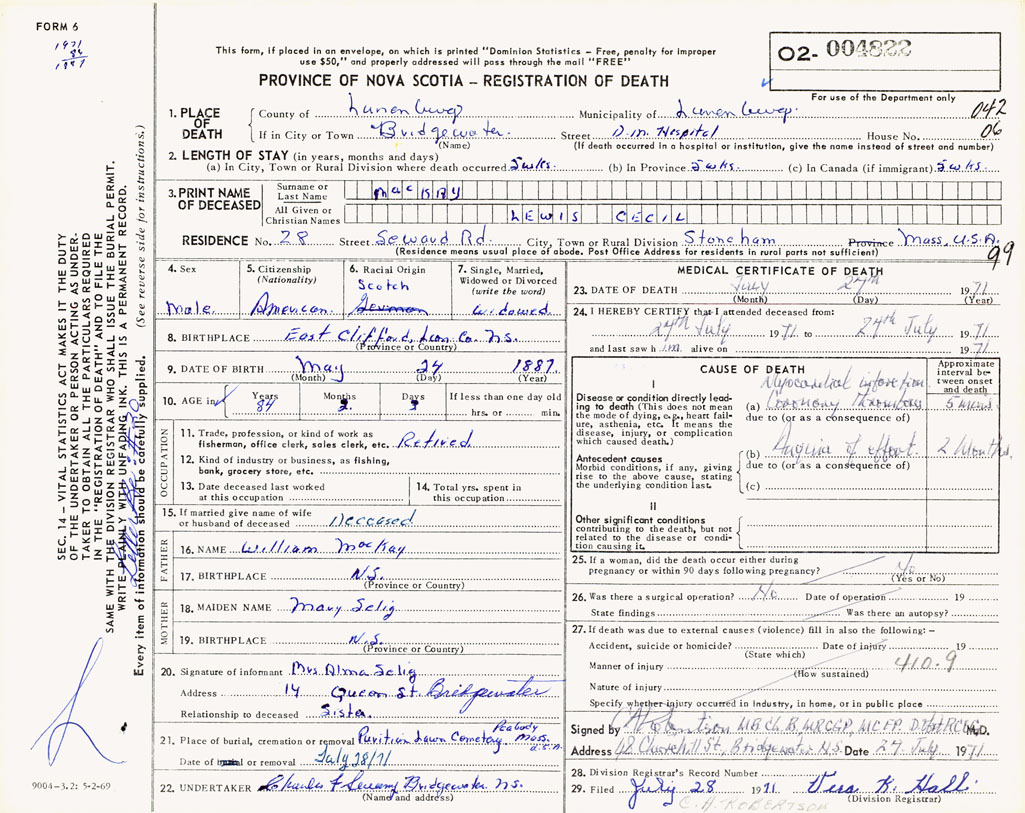 FORM 6
1971
84
1887
This form, if placed in an envelope, on which is printed "Dominion Statistics – Free, penalty for improper
use $50," and properly addressed will pass through the mail "FREE"
PROVINCE OF NOVA SCOTIA – REGISTRATION OF DEATH
O2- 004822
For use of the Department only
042
06
1. PLACE OF DEATH
County of Lunenburg Municipality of Lunenburg
If in City or Town Bridgewater. Street D.M. Hospital House No.
(Name) (If death occurred in a hospital or institution, give the name instead of street and number)
2. LENGTH OF STAY (in years, months and days)
(a) In City, Town or Rural Division where death occurred 5wks. (b) In Province 5wks. (c) In Canada (if immigrant) 5wks.
3. PRINT NAME OF DECEASED
Surname or Last Name MacKAY
All Given or Christian Names LEWIS CECIL
RESIDENCE No. 28 Street Seward Rd. City, Town or Rural Division Stoneham Province Mass. U.S.A.
(Residence means usual place of abode. Post Office Address for residents in rural parts not sufficient)
99
4. Sex
Male
5. Citizenship
(Nationality)
American
6. Racial Origin
Scotch
German
7. Single, Married,
Widowed or Divorced
(write the word)
Widowed
8. BIRTHPLACE East Clifford, Lun Co. N.S.
(Province or Country)
9. DATE OF BIRTH May 24 1887
(Month) (Day) (Year)
10. AGE in Years 84 Months 2 Days 3 If less than one day old
hrs. or min.
OCCUPATION
11. Trade, profession, or kind of work as
fisherman, office clerk, salesman, etc. Retired
12. Kind of industry or business, as fishing,
bank, grocery store, etc.
13. Date deceased last worked
at this occupation
14. Total yrs. spent in
this occupation
15. If married give name of wife
or husband of deceased Deceased
FATHER
16. NAME William MacKay
17. BIRTHPLACE N.S.
(Province or Country)
MOTHER
18. MAIDEN NAME Mary Selig
19. BIRTHPLACE N.S.
(Province or Country)
20. Signature of informant Mrs Alma Selig
Address 14 Queen St. Bridgewater
Relationship to deceased Sister
21. Place of burial, cremation or removal Puritian Lawn Cemetery Peabody Mass. U.S.A
Date of burial or removal July 28/71
22. UNDERTAKER Charles F Bridgewater N.S.
(Name and address)
MEDICAL CERTIFICATE OF DEATH
23. DATE OF DEATH July 27th 1971
(Month) (Day) (Year)
24. I HEREBY CERTIFY that I attended deceased from:
24th July 1971 to 27th July 1971
and last saw him alive on 1971
CAUSE OF DEATH
Approximate
interval be-
tween onset
and death
I
Disease or condition directly lead-
ing to death (This does not mean
the mode of dying, e.g., heart fail-
ure, asthenia, etc. It means the
disease, injury, or complication
which caused death.)
Myocardial infarction
(a) Coronary thrombosis 5
due to (or as a consequence of)
Antecedent causes
Morbid conditions, if any, giving
rise to the above cause, stating
the underlying condition last.
(b) Angina of effort 2 Months
due to (or as a consequence of)
(c)
II
Other significant conditions
contributing to the death, but not
related to the disease or condi-
tion causing it.
25. If a woman, did the death occur either during
pregnancy or within 90 days following pregnancy? No
(Yes or No)
26. Was there a surgical operation? No Date of operation 19
State findings Was there an autopsy?
27. If death was due to external causes (violence) fill in also the following: –
Accident, suicide or homicide? Date of injury 19
(State which)
Manner of injury 410.9
(How sustained)
Nature of injury
Specify whether injury occurred in Industry, in home, or in public place
Signed by M.B. Ch.B. M.D.
Address 42 Churchill St, Bridgewater N.S. Date 27 July 1971
28. Division Registrar's Record Number
29. Filed July 28 1971 Vera K. Hall
(Division Registrar)
C. H. ROBERTSON
SEC. 14 – VITAL STATISTICS ACT MAKES IT THE DUTY
OF THE UNDERTAKER OR PERSON ACTING AS UNDER-
TAKER TO OBTAIN THE PARTICULARS REQUIRED
IN THE "REGISTRATION OF DEATH" AND TO FILE THE
SAME WITH THE DIVISION REGISTRAR WHO SHALL ISSUE THE BURIAL PERMIT.
WRITE PLAINLY WITH UNFADING INK. THIS IS A PERMANENT RECORD.
Every item of information should be carefully supplied. (See reverse side for instructions.)
9004-3.2: 5-2-69